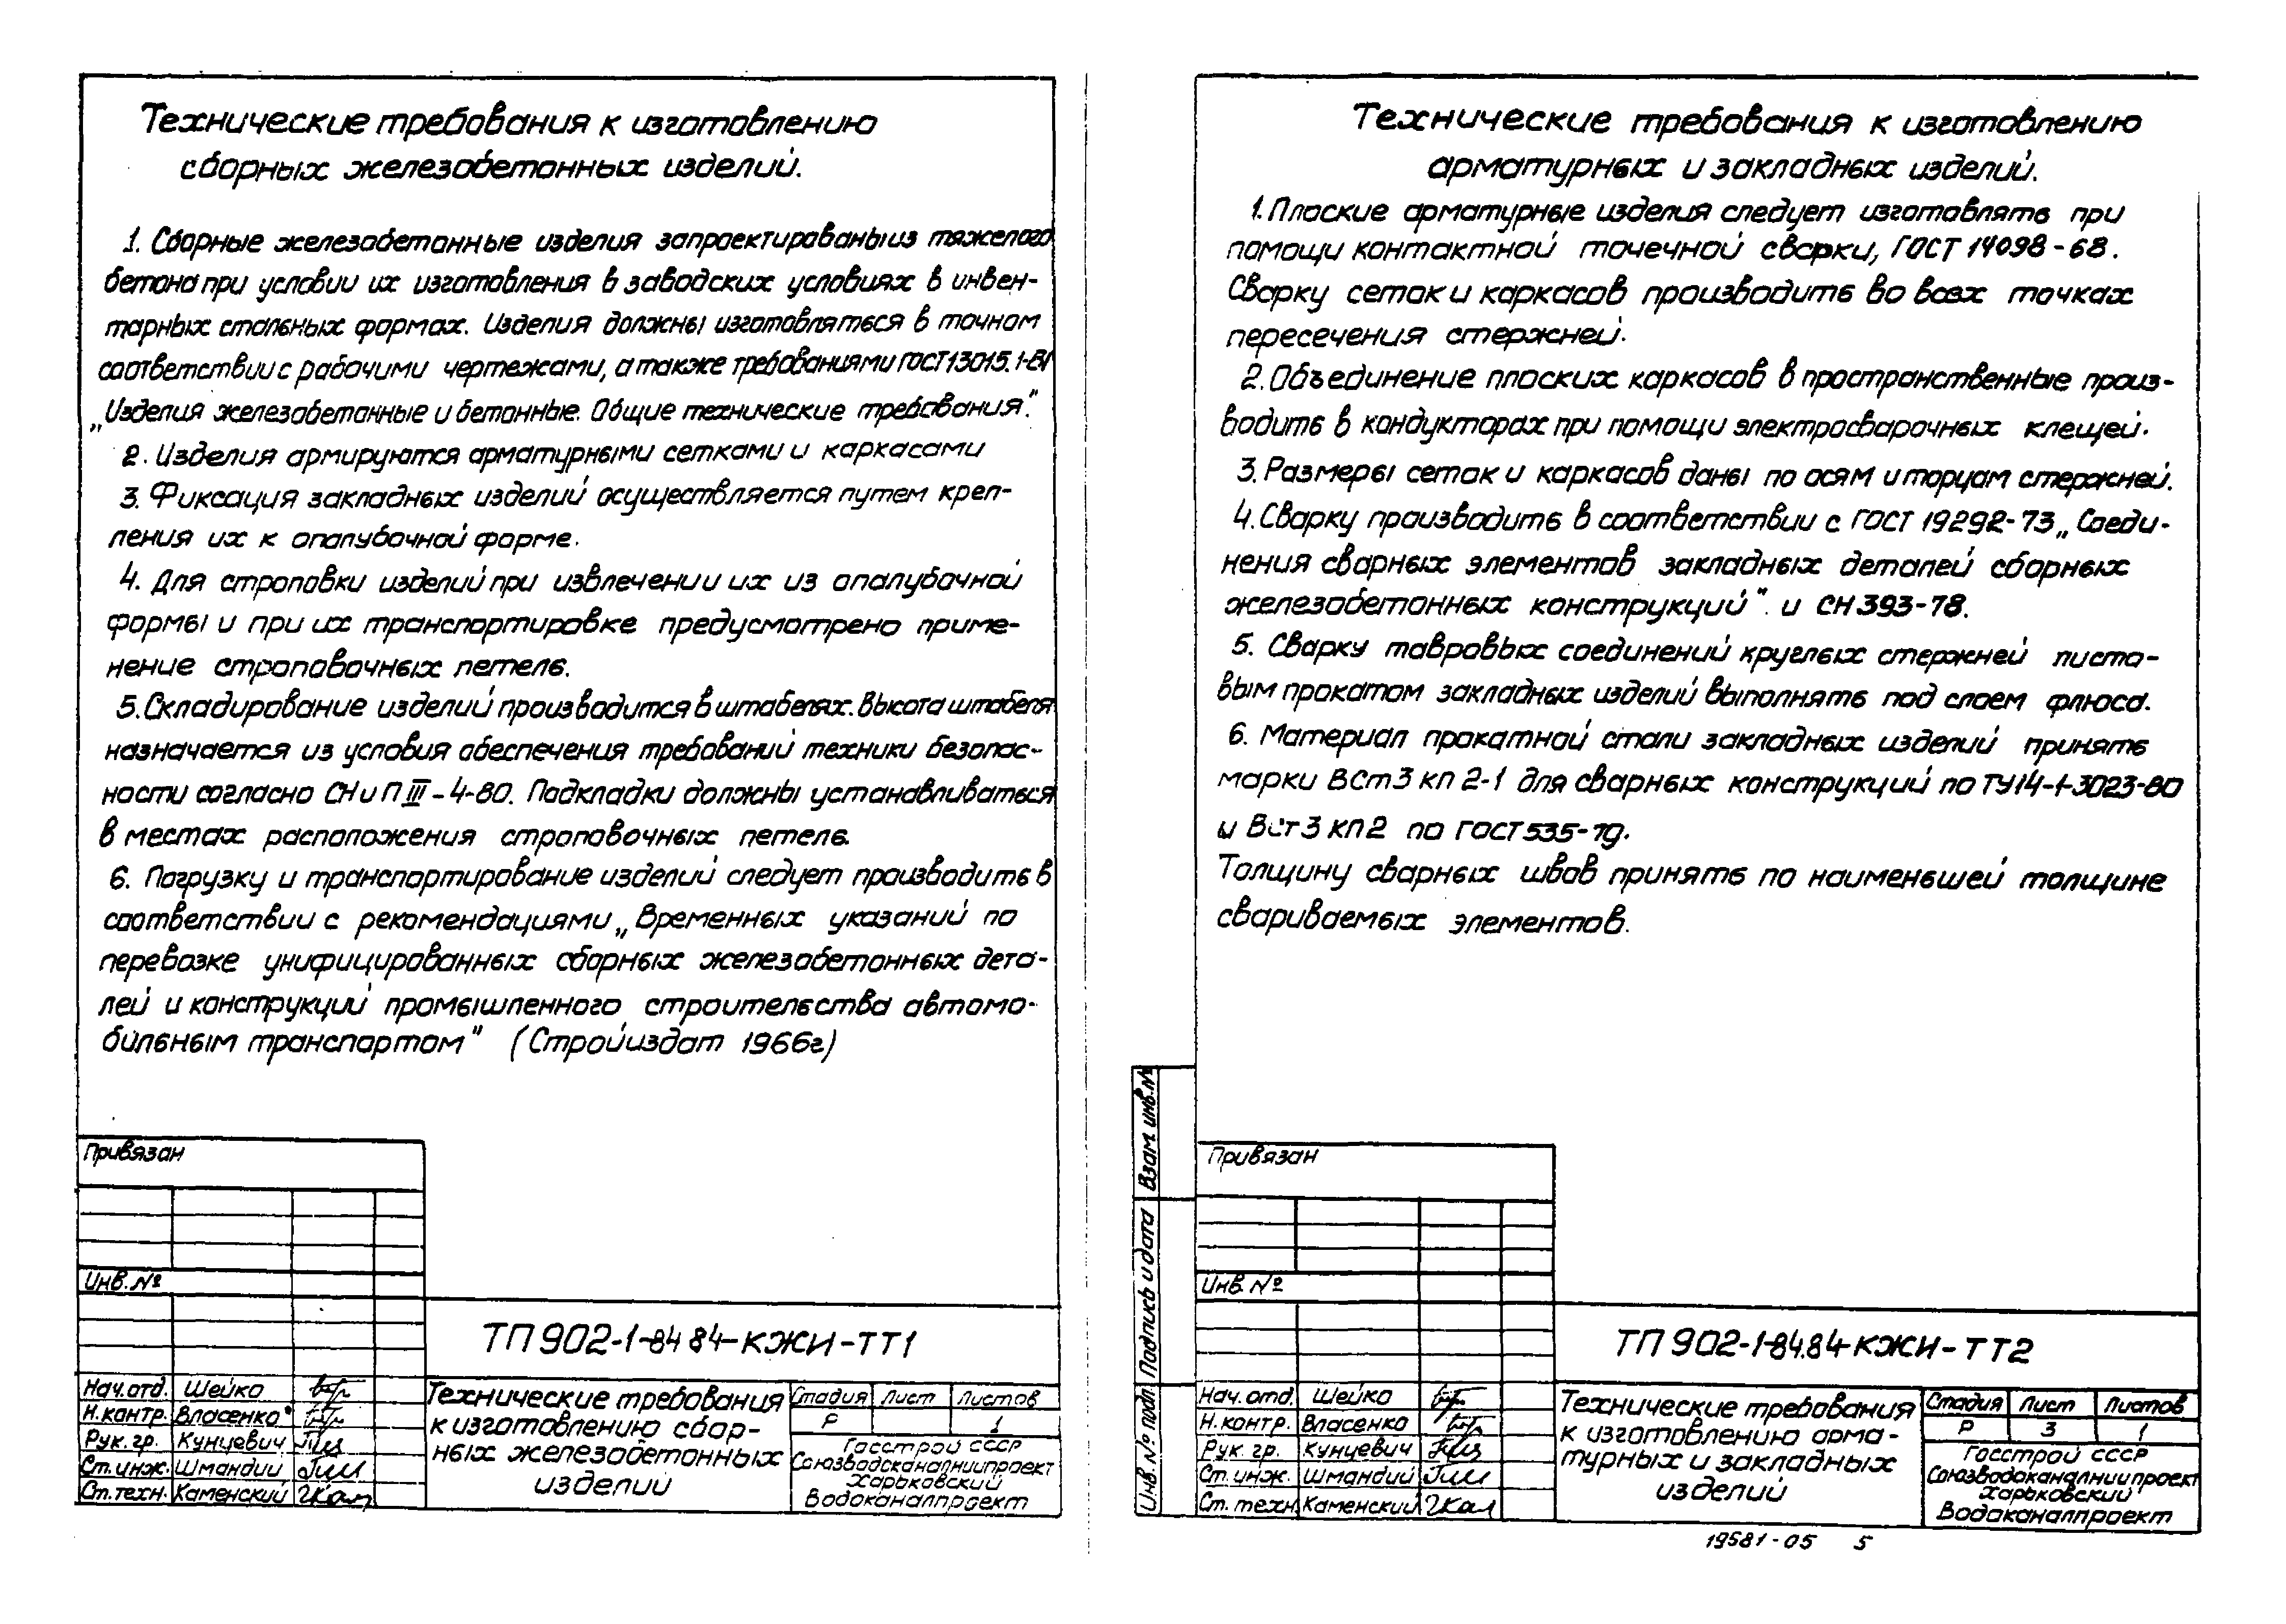 Технические требования к изготовлению
сборных железобетонных изделий.
1. Сборные железобетонные изделия запроектированы из тяжелого
бетона при условии их изготовления в заводских условиях в инвен-
тарных стальных формах. Изделия должны изготовляться в точном
соответствии с рабочими чертежами, а также требованиями ГОСТ 13015.1-81
„Изделия железобетонные и бетонные. Общие технические требования".
2. Изделия армируются арматурными сетками и каркасами
3. Фиксация закладных изделий осуществляется путем креп-
ления их к опалубочной форме.
4. Для строповки изделий при извлечении их из опалубочной
формы и при их транспортировке предусмотрено приме-
нение строповочных петель.
5. Складирование изделий производится в штабелях. Высота штабеля
назначается из условия обеспечения требований техники безопас-
ности согласно СНиП III-4-80. Подкладки должны устанавливаться
в местах расположения строповочных петель.
6. Погрузку и транспортирование изделий следует производить в
соответствии с рекомендациями „Временных указаний по
перевозке унифицированных сборных железобетонных дета-
лей и конструкций промышленного строительства автомо-
бильным транспортом" (Стройиздат 1966г)
Привязан
Инв. №
ТП 902-1-84 84-КЖИ-ТТ1
Нач.отд. Шейко
Н.контр. Власенко
Рук. гр. Кунцевич
Ст.инж. Шмандий
Ст.техн. Каменский
Технические требования
к изготовлению сбор-
ных железобетонных
изделий
Стадия Лист Листов
Р 1
Госстрой СССР
Союзводоканалниипроект
Харьковский
Водоканалпроект
Технические требования к изготовлению
арматурных и закладных изделий.
1. Плоские арматурные изделия следует изготовлять при
помощи контактной точечной сварки, ГОСТ 14098-68.
Сварку сеток и каркасов производить во всех точках
пересечения стержней.
2. Объединение плоских каркасов в пространственные произ-
водить в кондукторах при помощи электросварочных клещей.
3. Размеры сеток и каркасов даны по осям и торцам стержней.
4. Сварку производить в соответствии с ГОСТ 19292-73 „Соеди-
нения сварных элементов закладных деталей сборных
железобетонных конструкций". и СН 393-78.
5. Сварку тавровых соединений круглых стержней листо-
вым прокатом закладных изделий выполнять под слоем флюса.
6. Материал прокатной стали закладных изделий принять
марки ВСт3 кп 2-1 для сварных конструкций по ТУ14-1-3023-80
и Вст 3 кп2 по ГОСТ 535-79.
Толщину сварных швов принять по наименьшей толщине
свариваемых элементов.
Взам. инв.№
Подпись и дата
Инв. № подл.
Привязан
Инв. №
ТП 902-1-84.84-КЖИ-ТТ2
Нач. отд. Шейко
Н.контр. Власенко
Рук. гр. Кунцевич
Ст.инж. Шмандий
Ст. техн. Каменский
Технические требования
к изготовлению арма-
турных и закладных
изделий
Стадия Лист Листов
Р 3 1
Госстрой СССР
Союзводоканалниипроект
Харьковский
Водоканалпроект
19581-05 5